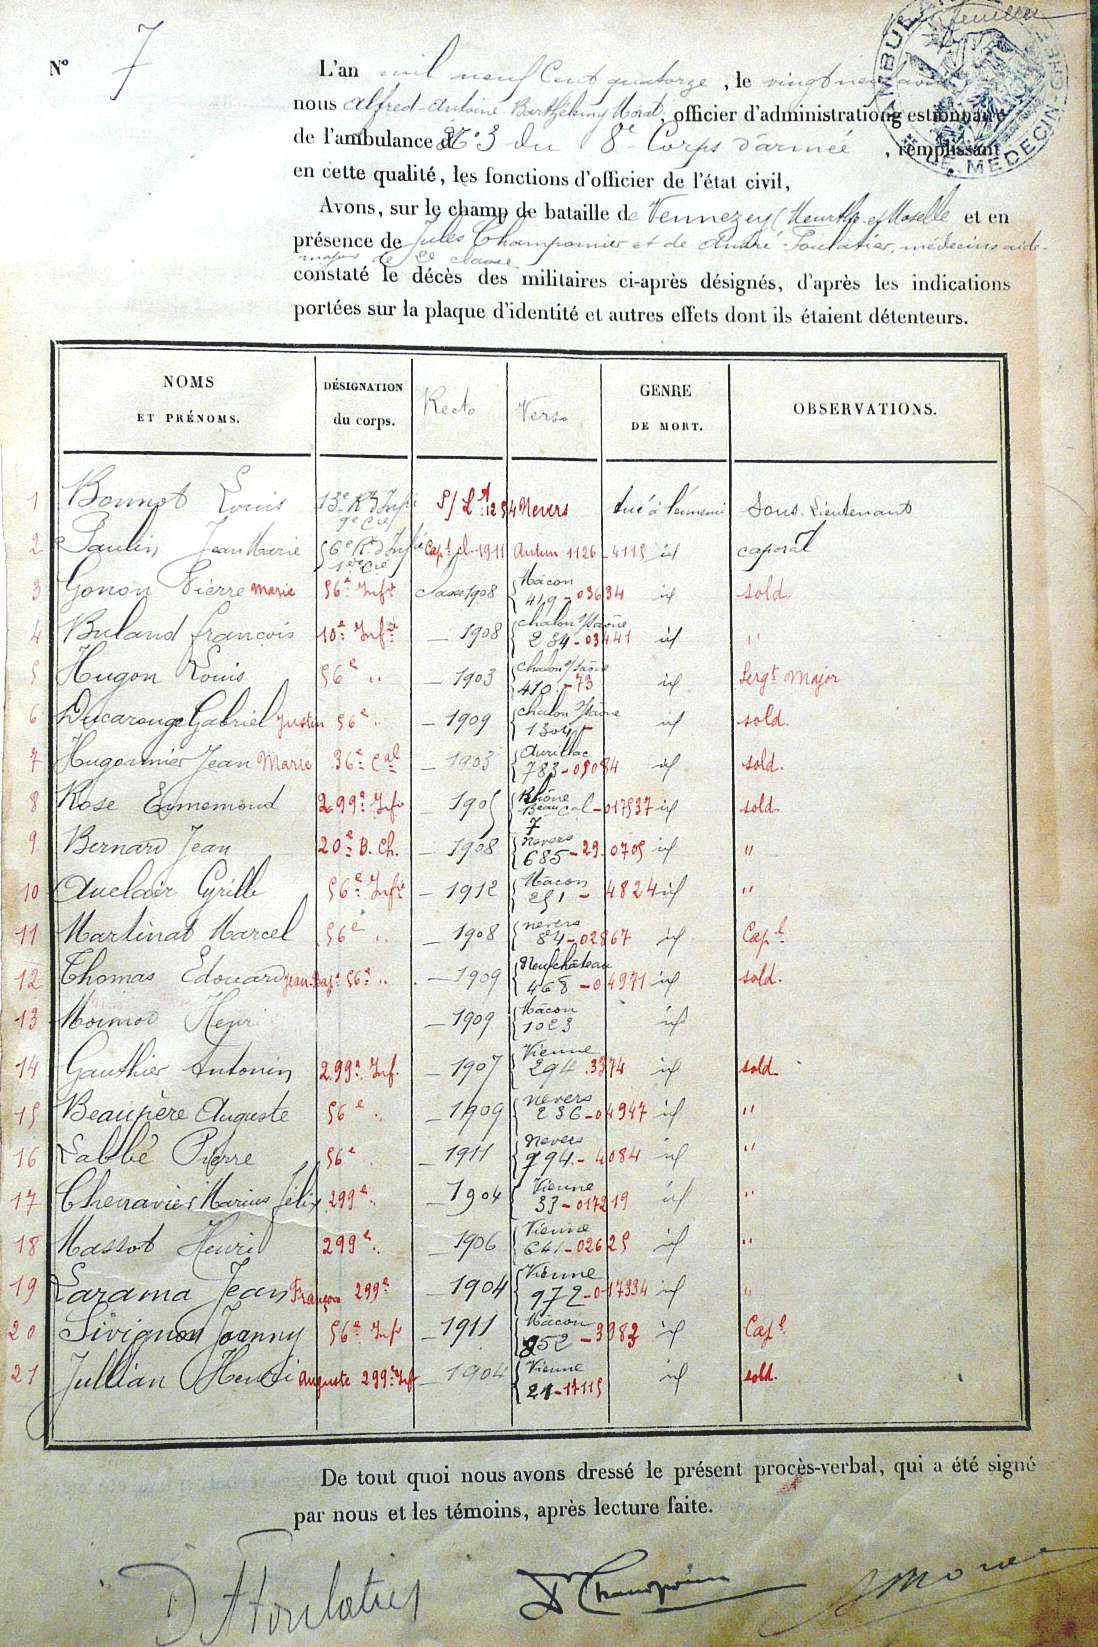 N° 7
L'an mil neuf Cent quatorze, le vingt neuf
nous Alfred-Antoine Barthélemy Morat, officier d'administration gestionnaire
de l'ambulance d N° 3 du 8e Corps d'armée, remplissant
en cette qualité, les fonctions d'officier de l'état civil,
Avons, sur le champ de bataille de Vennezey (Meurthe et Moselle et en
présence de Jules Champonnier et de André Foulatier, médecins aide-
majors de 2e classe
constaté le décès des militaires ci-après désignés, d'après les indications
portées sur la plaque d'identité et autres effets dont ils étaient détenteurs.
NOMS ET PRÉNOMS. DÉSIGNATION du corps. Recto Verso GENRE DE MORT. OBSERVATIONS.
1 Bonnot Louis 13e Rt d'Infie 9e Cie S/Lt 1254 Nevers tué à l'ennemi Sous-Lieutenant
2 Paulin Jean Marie 56e Rt d'Infie 1ère Cie Capl cl 1911 Autun 1126-4115 id caporal
3 Gonon Pierre Marie 56e Infie Classe 1908 Mâcon 419-03634 id sold.
4 Buland François 10e Infie — 1908 Chalon s/Saône 284-03441 id "
5 Hugon Louis 56e " — 1903 Chalon s/Saône 410-73 id Sergt Major
6 Ducarouge Gabriel Justin 56e " — 1909 Chalon s/Saône 1304 id sold.
7 Hugonnier Jean Marie 36e Cal — 1903 Aurillac 783-09084 id sold.
8 Rose Eymemond 299e Infie — 1905 Rhône Beau cal 7-017537 id sold.
9 Bernard Jean 20e B. Ch. — 1908 Nevers 685-29.0705 id "
10 Auclair Cyrille 56e Infie — 1912 Mâcon 251-4824 id "
11 Martinat Marcel 56e " — 1908 Nevers 84-02867 id Capl
12 Thomas Edouard Jean-Bapt 56e " — 1909 Neufchâteau 468-04971 id sold.
13 Moinod Henri — 1909 Mâcon 1023 id
14 Gauthier Antonin 299e Inf. — 1907 Vienne 294.3374 id sold.
15 Beaupère Auguste 56e " — 1909 Nevers 236-04947 id "
16 Labbé Pierre 56e " — 1911 Nevers 794-4084 id "
17 Chenavier Marius Félix 299e " — 1904 Vienne 33-017219 id "
18 Massot Henri 299e " — 1906 Vienne 641-02625 id "
19 Larama Jean François 299e — 1904 Vienne 972-017334 id "
20 Sivignon Joanny 56e Infie — 1911 Mâcon 852-3983 id Capl
21 Jullian Henri Auguste 299e Inf — 1904 Vienne 21-17115 id sold.
De tout quoi nous avons dressé le présent procès-verbal, qui a été signé
par nous et les témoins, après lecture faite.